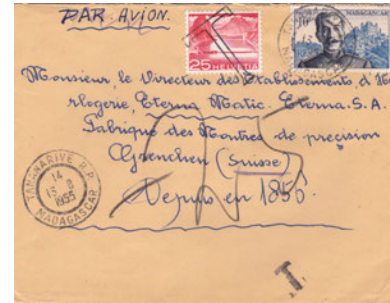 PAR AVION.
T
25 HELVETIA
MADAGASCAR
Monsieur, le Directeur des Etablissements, d'Ho
rlogerie, Eterna Matic. Eterna. S.A.
Fabrique des Montres de precision
Grenchen (Suisse)
Depuis en 1856.
25
TANANARIVE R.P.
14
1955
MADAGASCAR
T.